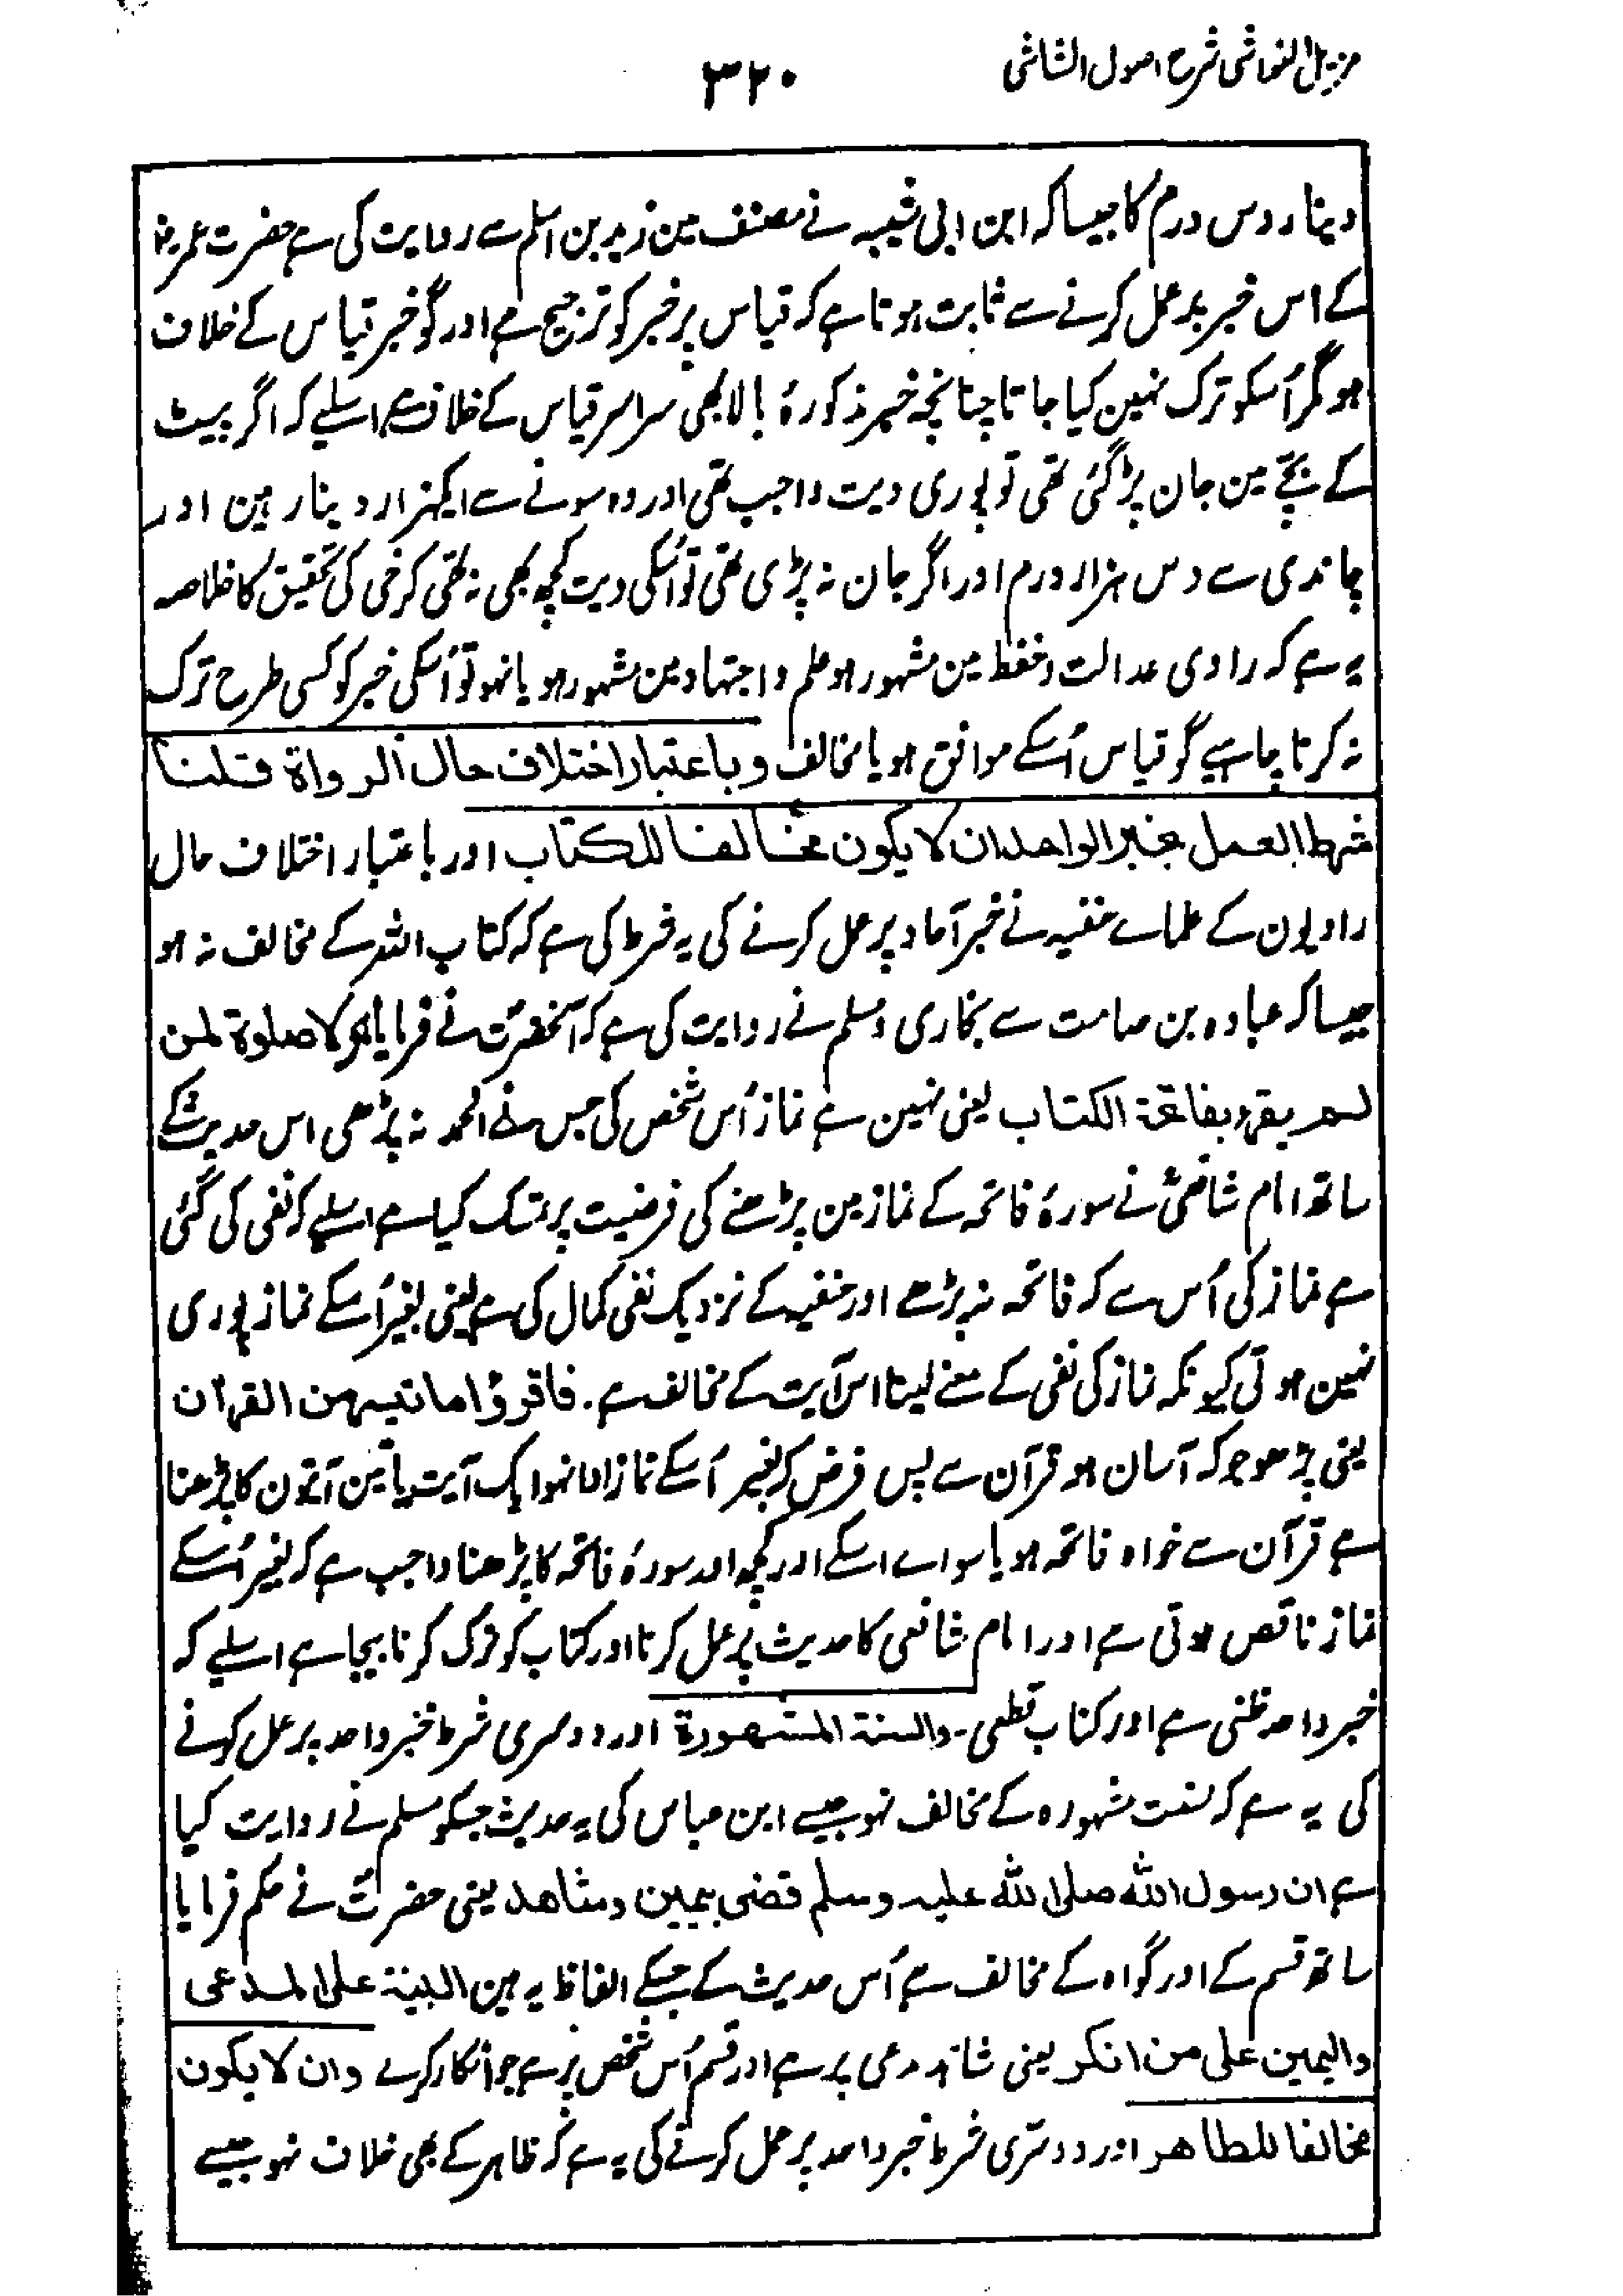 مزیل الغواشی شرح اصول الشاشی
۳۲۰
دینار دس درم کا جیسا کہ ابن ابی شیبہ نے مصنف مین زید بن اسلم سے روایت کی ہے حضرت عمر رضؓ
کے اس خبر پر عمل کرنے سے ثابت ہوتا ہے کہ قیاس پر خبر کو ترجیح ہے اور گو خبر قیاس کے خلاف
ہو مگر اُسکو ترک نہین کیا جاتا چنانچہ خبر مذکورۂ بالا بھی سراسر قیاس کے خلاف ہے اسلیے کہ اگر پیٹ
کے بچّے مین جان پڑ گئی تھی تو پوری دیت واجب تھی اور وہ سونے سے ایکہزار دینار ہین اور
چاندی سے دس ہزار درم اور اگر جان نہ پڑی تھی تو اُسکی دیت کچھ بھی نہ تھی کرخی کی تحقیق کا خلاصہ
یہ ہے کہ راوی عدالت و حفظ مین مشہور ہو علم و اجتہاد مین مشہور ہو یا نہو تو اُسکی خبر کو کسی طرح ترک
نہ کرنا چاہیے گو قیاس اُسکے موافق ہو یا مخالف وباعتبار اختلاف حال الرواة قلنا
شرط العمل بخبر الواحد ان لا یکون مخالفا للکتاب اور باعتبار اختلاف حال
راویون کے علمائے حنفیہ نے خبر آحاد پر عمل کرنے کی یہ شرط کی ہے کہ کتاب اللہ کے مخالف نہ ہو
جیسا کہ عبادہ بن صامت سے بخاری و مسلم نے روایت کی ہے کہ آنحضرتؐ نے فرمایا ہو لا صلوة لمن
لم یقرء بفاتحة الکتاب یعنی نہین ہے نماز اُس شخص کی جس نے الحمد نہ پڑھی اس حدیث کے
ساتھ امام شافعیؒ نے سورۂ فاتحہ کے نماز مین پڑھنے کی فرضیت پر تمسک کیا ہے اسلیے کہ نفی کی گئی
ہے نماز کی اُس سے کہ فاتحہ نہ پڑھے اور حنفیہ کے نزدیک نفی کمال کی ہے یعنی بغیر اُسکے نماز پوری
نہین ہوتی کیونکہ نماز کی نفی کے معنے لینا اس آیت کے مخالف ہے۔ فاقرؤا ما تیسر من القرآن
یعنی پڑھو جو کہ آسان ہو قرآن سے پس فرض کہ بغیر اُسکے نماز ادا نہو ایک آیت یا تین آیتون کا پڑھنا
ہے قرآن سے خواہ فاتحہ ہو یا سوا اسکے اور کچھ اور سورۂ فاتحہ کا پڑھنا واجب ہے کہ بغیر اُسکے
نماز ناقص ہوتی ہے اور امام شافعی کا حدیث پر عمل کرنا اور کتاب کو ترک کرنا بیجا ہے اسلیے کہ
خبر واحد ظنی ہے اور کتاب قطعی۔ والسنة المشهورة اور دوسری شرط خبر واحد پر عمل کرنے
کی یہ ہے کہ سنت مشہورہ کے مخالف نہو جیسے ابن عباس کی یہ حدیث جسکو مسلم نے روایت کیا
ہے ان رسول اللہ صلی اللہ علیہ وسلم قضی بیمین وشاهد یعنی حضرتؐ نے حکم فرمایا
ساتھ قسم کے اور گواہ کے مخالف ہے اُس حدیث کے جسکے الفاظ یہ ہین البینة علی المدعی
والیمین علی من انکر یعنی شاہد مدعی پر ہے اور قسم اُس شخص پر ہے جو انکار کرے وان لا یکون
مخالفا للظاهر اور دوسری شرط خبر واحد پر عمل کرنے کی یہ ہے کہ ظاہر کے بھی خلاف نہو جیسے